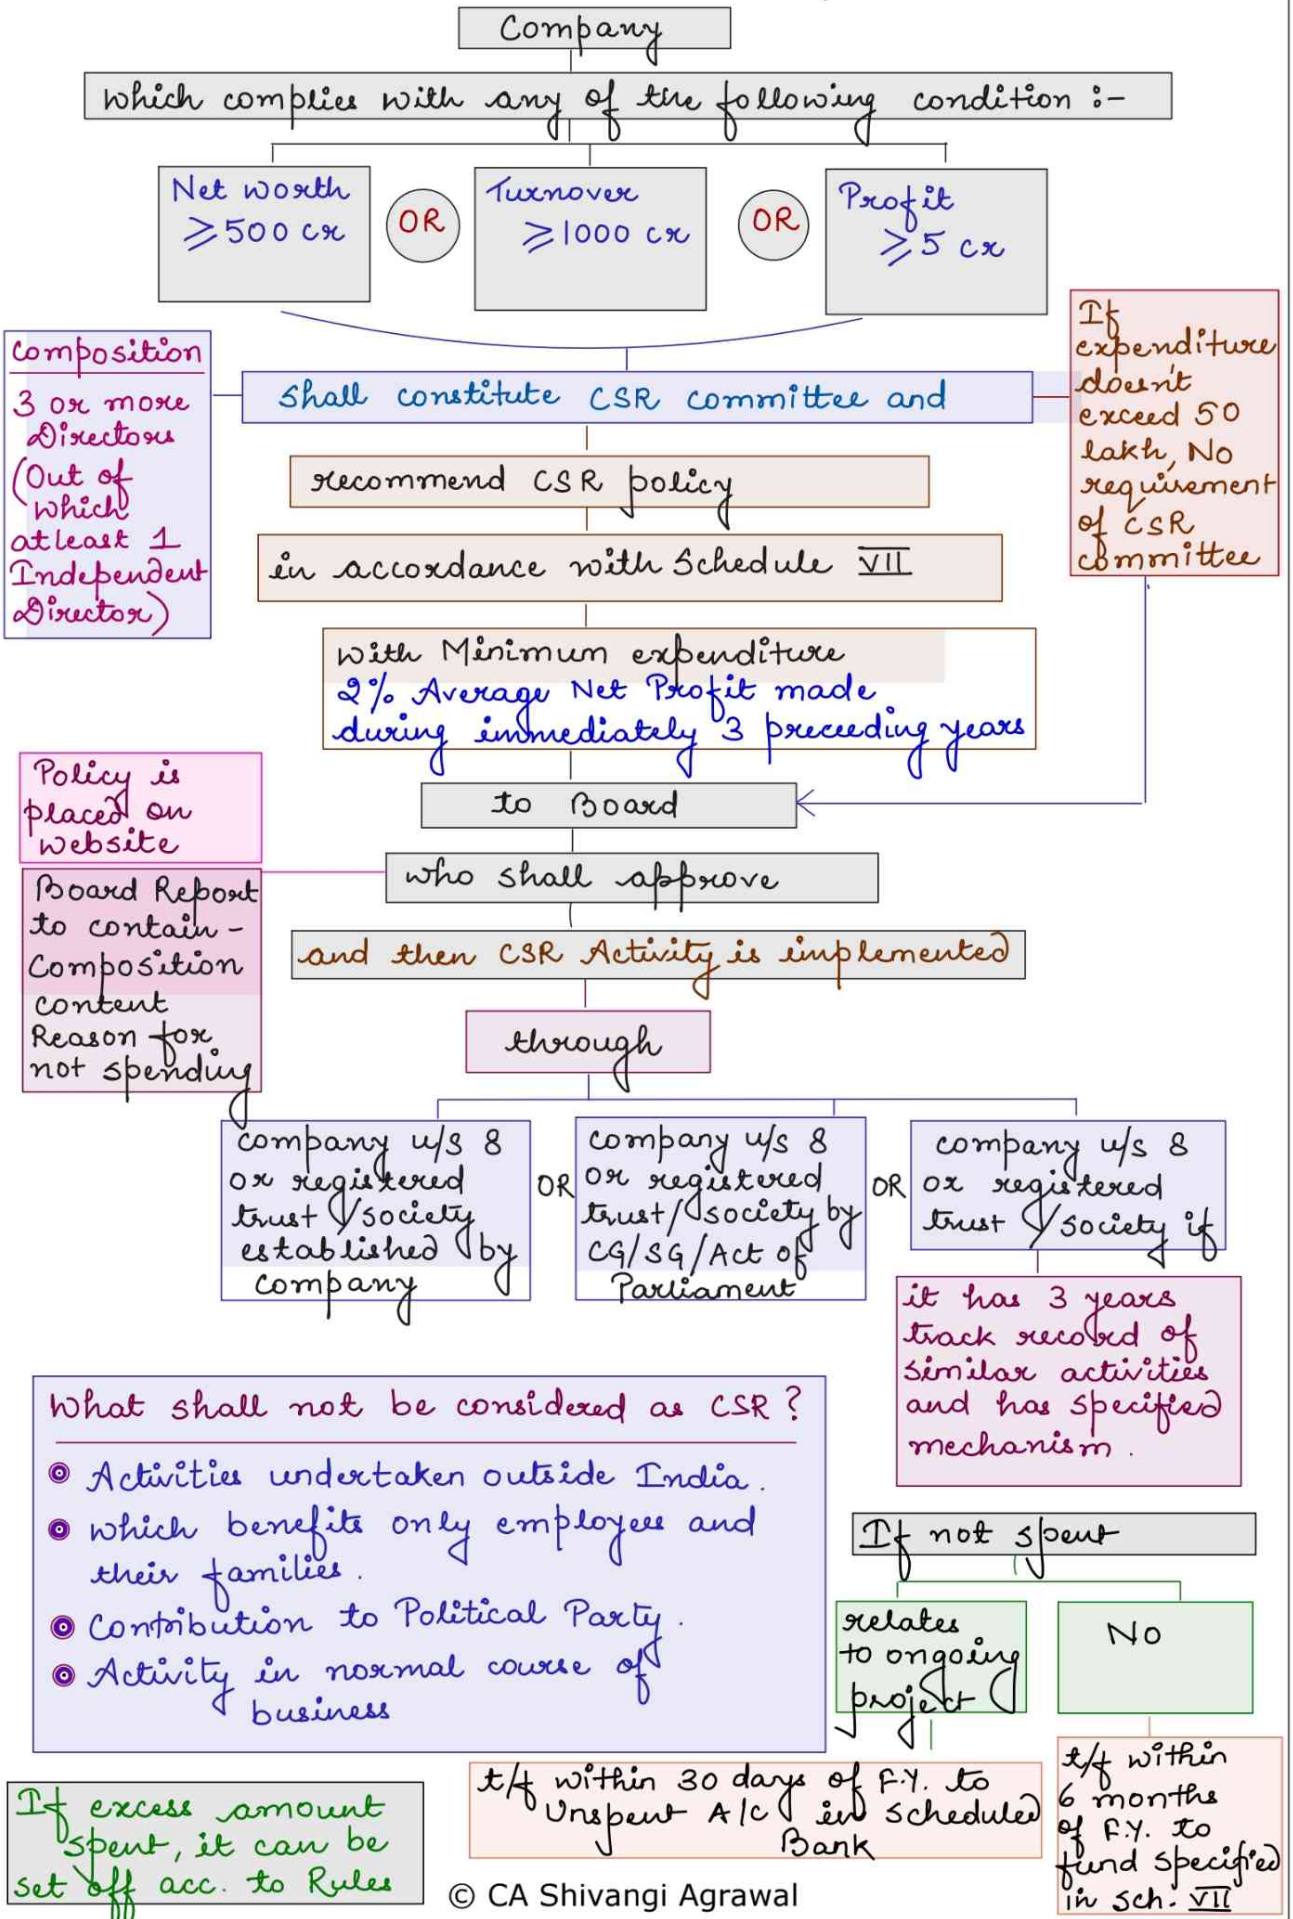 Company
which complies with any of the following condition :-
Net worth
≥ 500 cr
OR
Turnover
≥ 1000 cr
OR
Profit
≥ 5 cr
If
expenditure
doesn't
exceed 50
lakh, No
requirement
of CSR
committee
Composition
3 or more
Directors
(Out of
which
atleast 1
Independent
Director)
Shall constitute CSR committee and
recommend CSR policy
in accordance with Schedule VII
with Minimum expenditure
2% Average Net Profit made
during immediately 3 preceeding years
Policy is
placed on
website
to Board
who shall approve
Board Report
to contain -
Composition
content
Reason for
not spending
and then CSR Activity is implemented
through
company u/s 8
or registered
trust/society
established by
company
OR
company u/s 8
or registered
trust/society by
CG/SG/Act of
Parliament
OR
company u/s 8
or registered
trust/society if
it has 3 years
track record of
similar activities
and has specified
mechanism.
What shall not be considered as CSR?
Activities undertaken outside India.
which benefits only employees and
their families.
Contribution to Political Party.
Activity in normal course of
business
If not spent
relates
to ongoing
project
No
t/f within 30 days of F.Y. to
Unspent A/c in scheduled
Bank
t/f within
6 months
of F.Y. to
fund specified
in sch. VII
If excess amount
spent, it can be
set off acc. to Rules
© CA Shivangi Agrawal